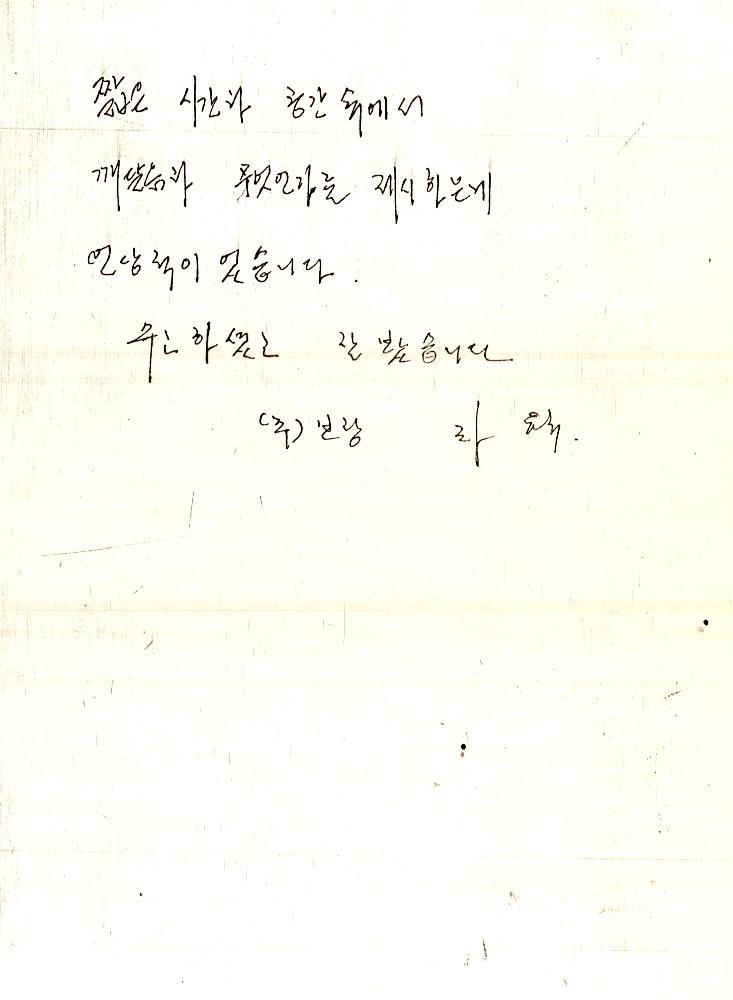 짧은 시간과 공간 속에서
깨달음과 무엇인가를 제시하는데
인상적이 었습니다.
수고하셨고 잘 봤습니다
(주)보랑 라